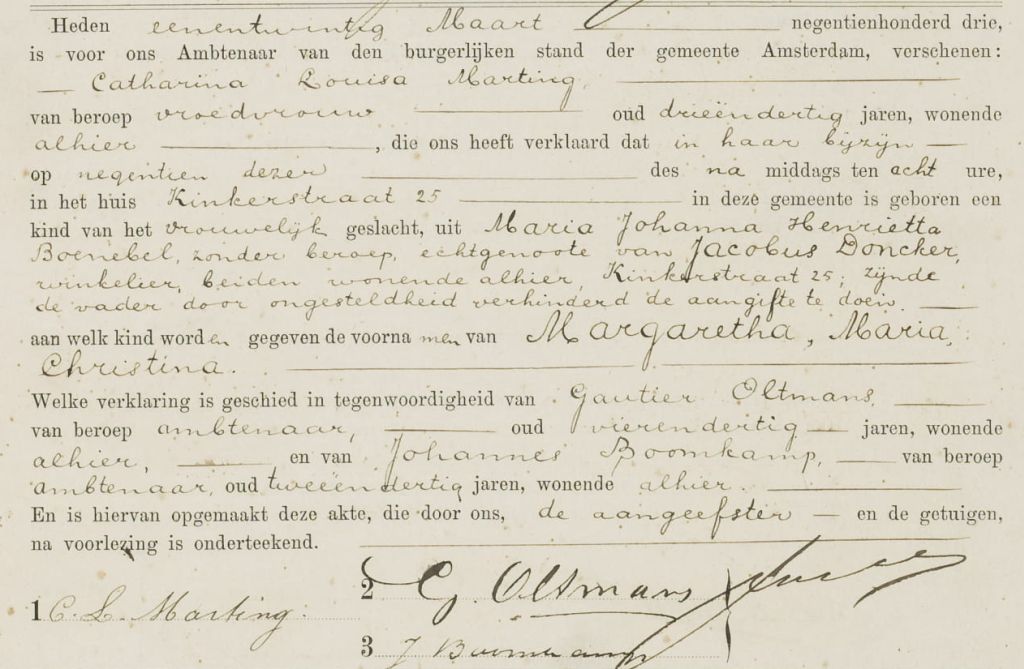 Heden eenentwintig Maart negentienhonderd drie,
is voor ons Ambtenaar van den burgerlijken stand der gemeente Amsterdam, verschenen:
Catharina Louisa Marting,
van beroep vroedvrouw oud drieëndertig jaren, wonende
alhier, die ons heeft verklaard dat in haar bijzijn
op negentien dezer des na middags ten acht ure,
in het huis Kinkerstraat 25 in deze gemeente is geboren een
kind van het vrouwelijk geslacht, uit Maria Johanna Henrietta
Boenebel, zonder beroep, echtgenoote van Jacobus Doncker,
winkelier, beiden wonende alhier, Kinkerstraat 25; zijnde
de vader door ongesteldheid verhinderd de aangifte te doen.
aan welk kind worden gegeven de voornamen van Margaretha, Maria,
Christina.
Welke verklaring is geschied in tegenwoordigheid van Gautier Oltmans,
van beroep ambtenaar, oud vierendertig jaren, wonende
alhier, en van Johannes Boomkamp, van beroep
ambtenaar, oud tweeëndertig jaren, wonende alhier.
En is hiervan opgemaakt deze akte, die door ons, de aangeefster en de getuigen,
na voorlezing is onderteekend.
1 C. L. Marting.
2 G. Oltmans
3 J Boomkamp